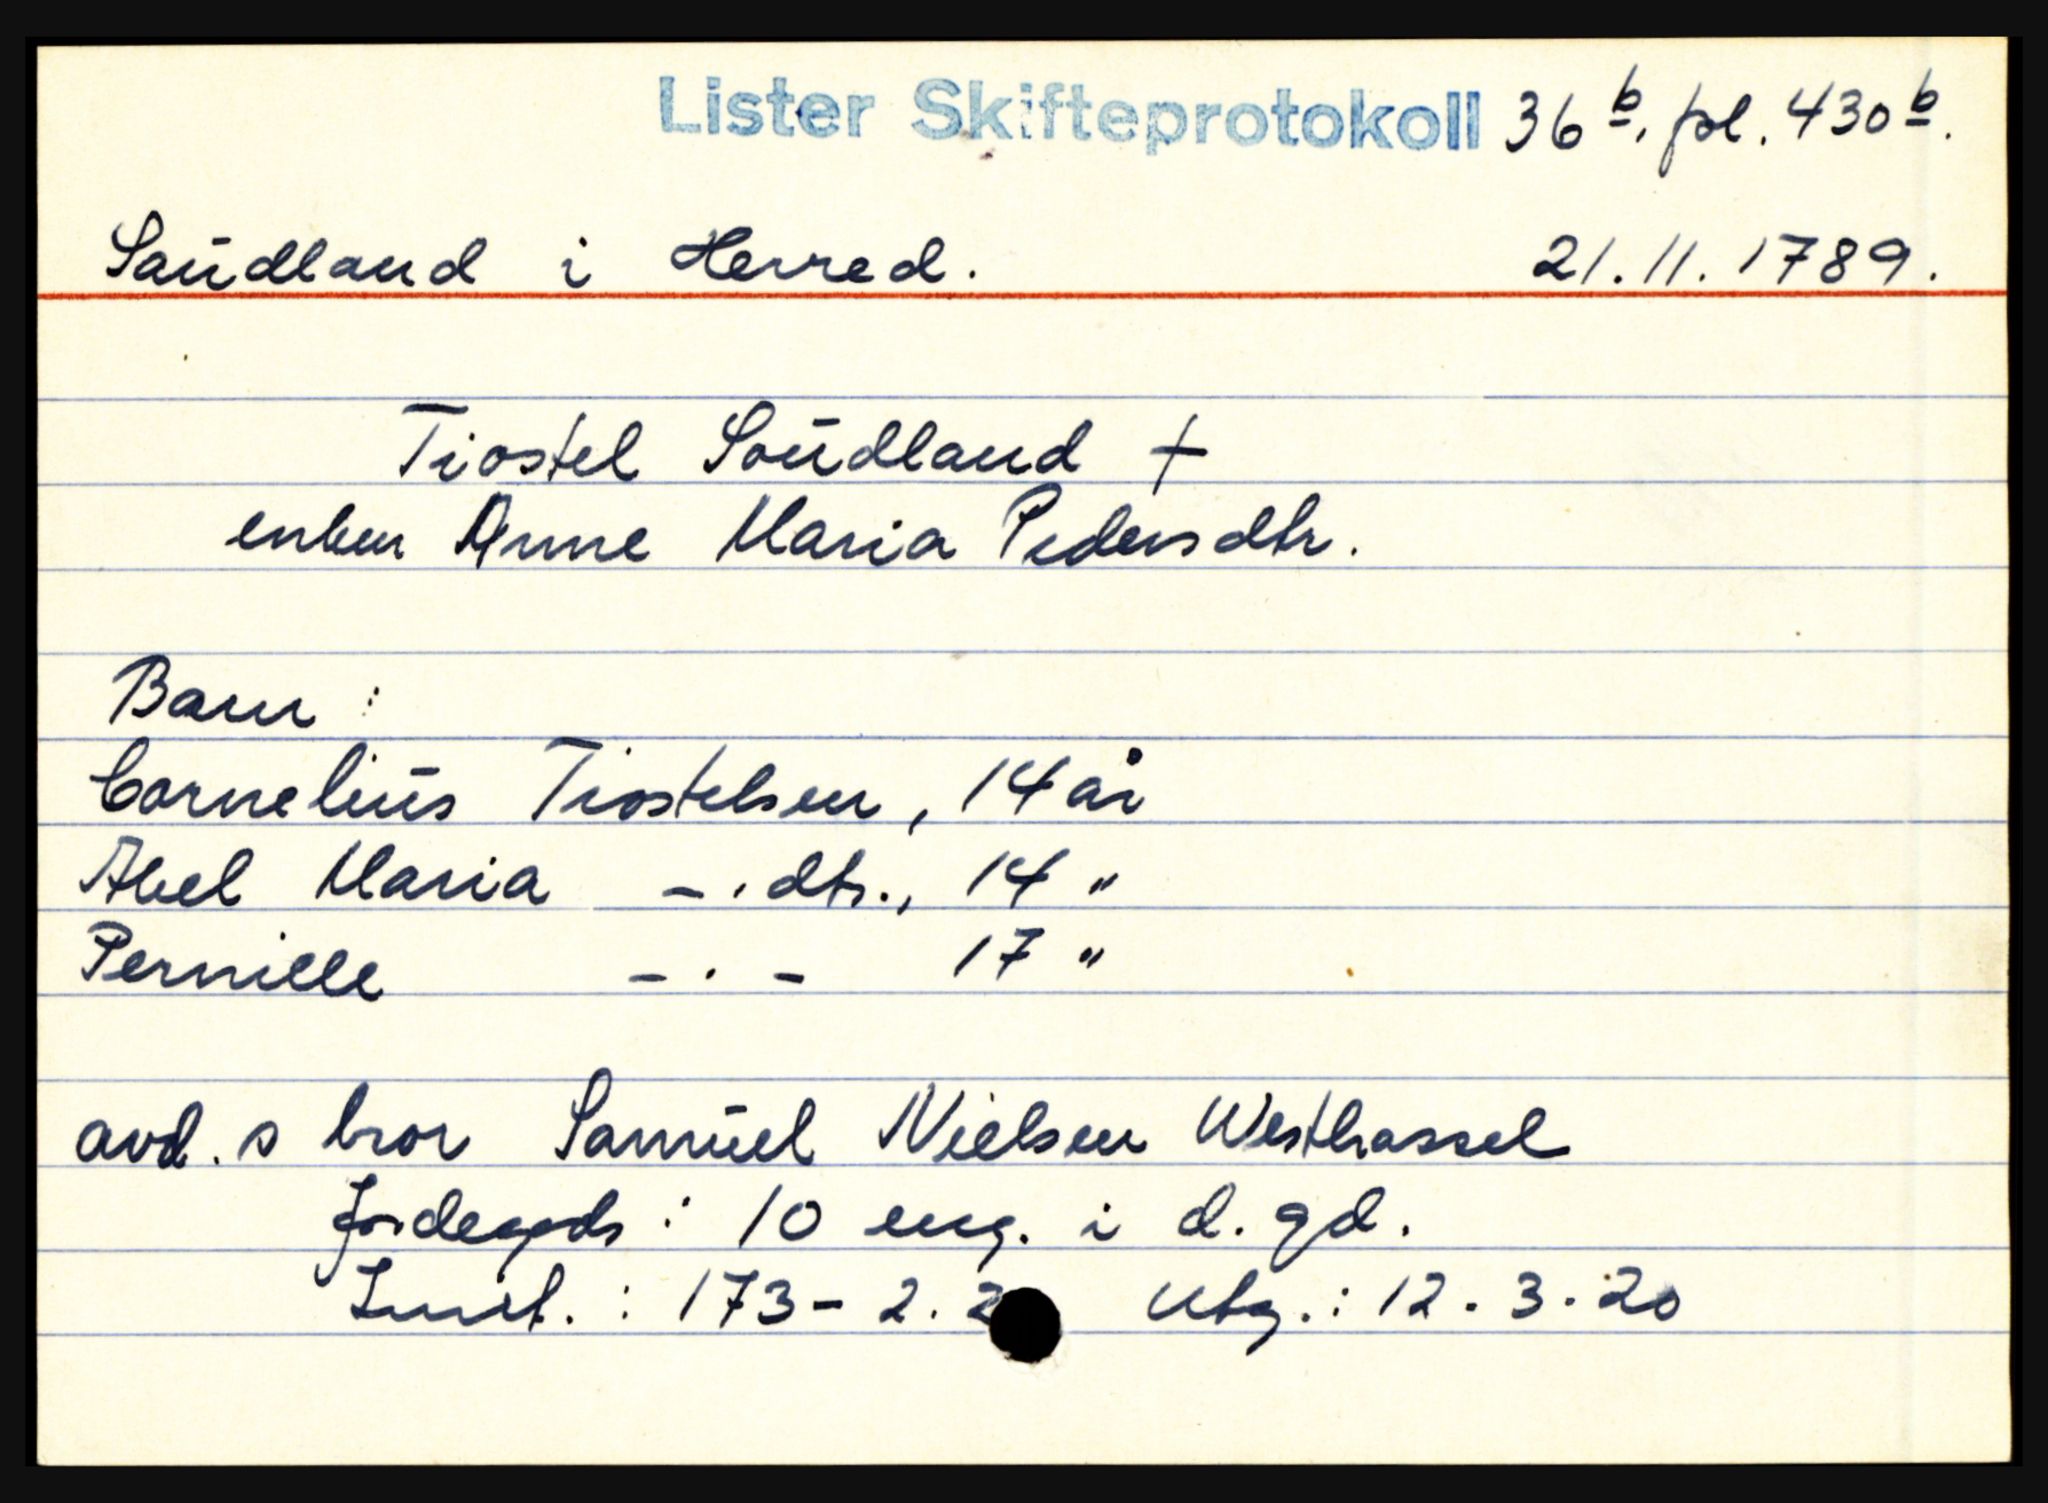 Lister Skifteprotokoll 36 b, fol. 430 b.
Saudland i Herred. 21.11.1789.
Tiostel Saudland +
enken Anne Maria Pedersdtr.
Barn :
Cornelius Tiostelsen, 14 år
Abel Maria - . dtr., 14 "
Pernille - . - 17 "
avd. s bror Samuel Nielsen Westhassel
Jordegods : 10 eng. i d. gd.
: 173 - 2. 2 Utg. : 12 . 3 . 20